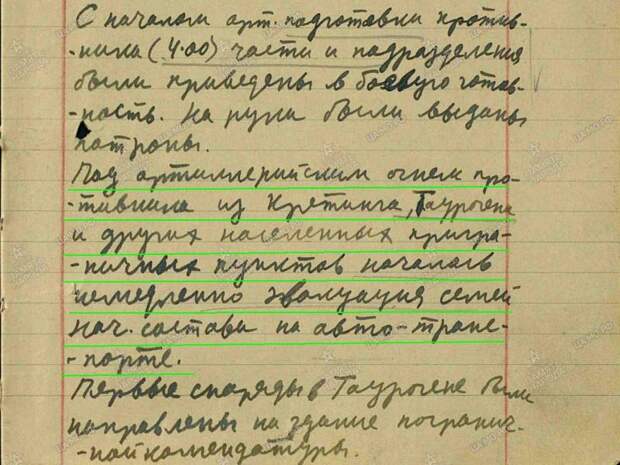 С началом арт. подготовки против-
-ника (4.00) части и подразделения
были приведены в боевую готов-
-ность. На руки были выданы
патроны.
Под артиллерийским огнем про-
-тивника из Кретинга, Таурогена
и других населенных пригра-
-ничных пунктов началась
немедленно эвакуация семей
нач. состава на авто-транс-
-порте.
Первые снаряды в Таурогене были
направлены на здание погранич-
-ной комендатуры.